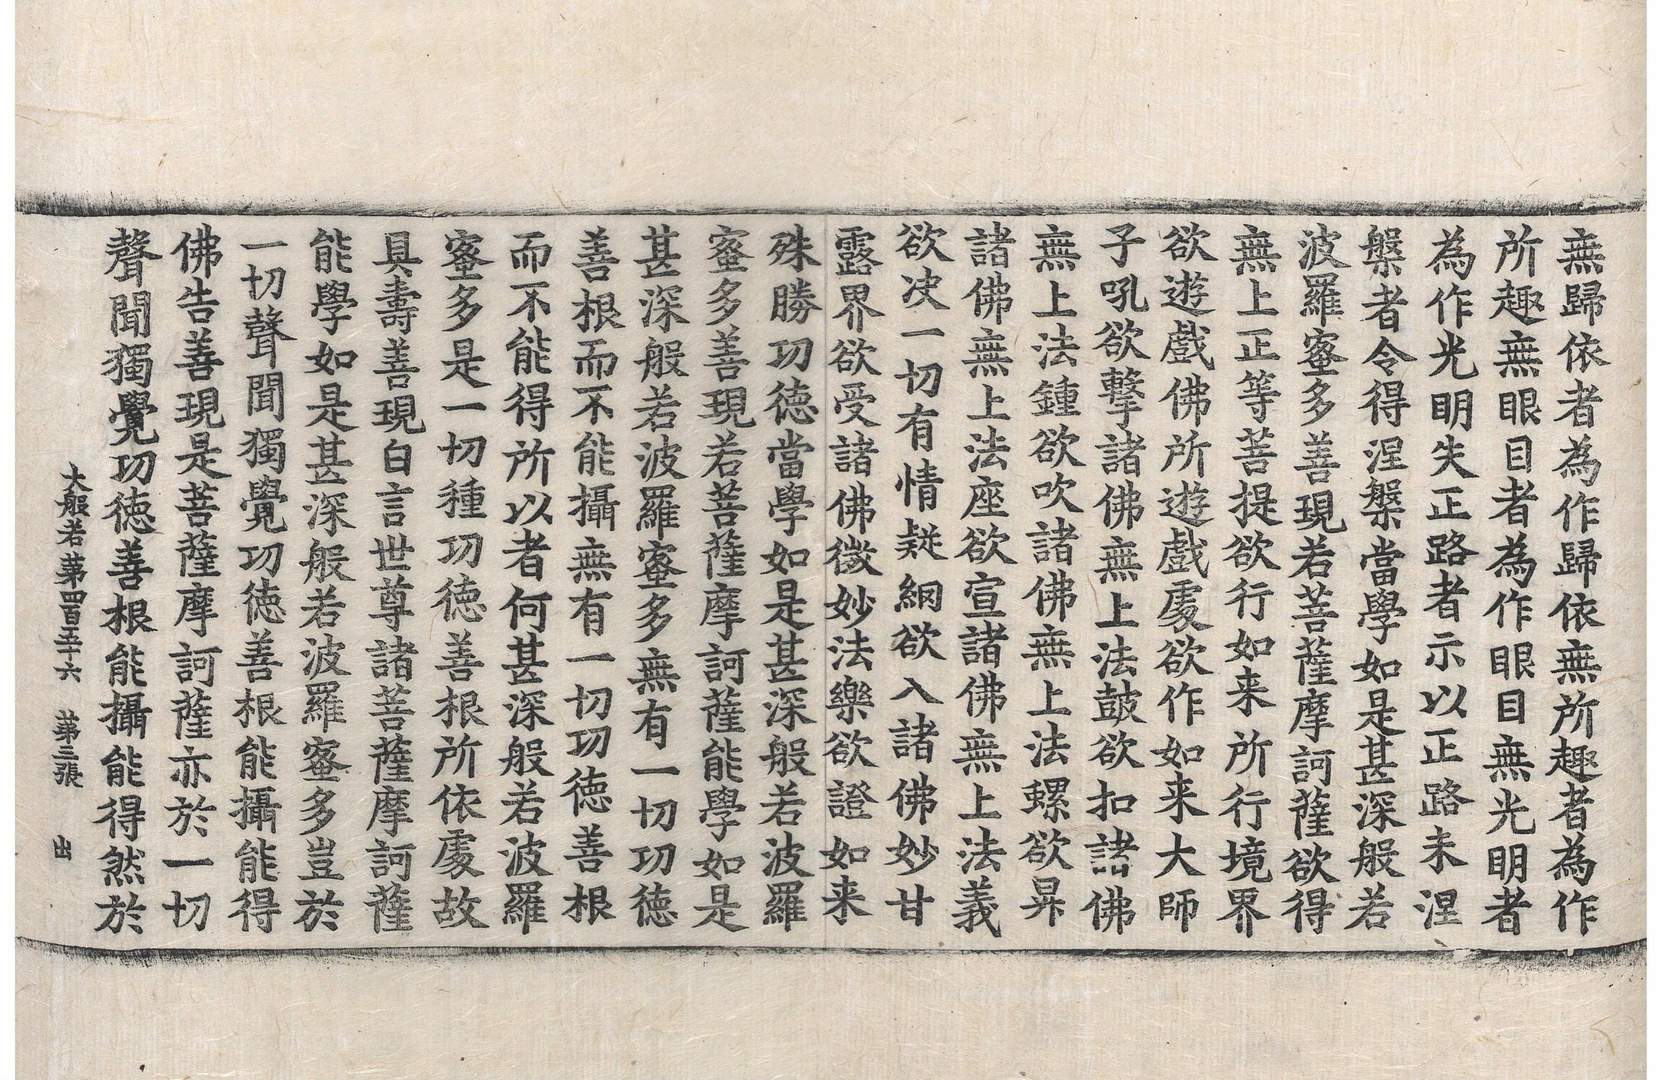 無歸依者為作歸依無所趣者為作
所趣無眼目者為作眼目無光明者
為作光明失正路者示以正路未涅
槃者令得涅槃當學如是甚深般若
波羅蜜多善現若菩薩摩訶薩欲得
無上正等菩提欲行如来所行境界
欲遊戲佛所遊戲處欲作如来大師
子吼欲擊諸佛無上法鼓欲扣諸佛
無上法鍾欲吹諸佛無上法螺欲昇
諸佛無上法座欲宣諸佛無上法義
欲决一切有情疑網欲入諸佛妙甘
露界欲受諸佛微妙法樂欲證如来
殊勝功德當學如是甚深般若波羅
蜜多善現若菩薩摩訶薩能學如是
甚深般若波羅蜜多無有一切功德
善根而不能攝無有一切功德善根
而不能得所以者何甚深般若波羅
蜜多是一切種功德善根所依處故
具壽善現白言世尊諸菩薩摩訶薩
能學如是甚深般若波羅蜜多豈於
一切聲聞獨覺功德善根能攝能得
佛告善現是菩薩摩訶薩亦於一切
聲聞獨覺功德善根能攝能得然於
大般若第四百五十六 第三張 出